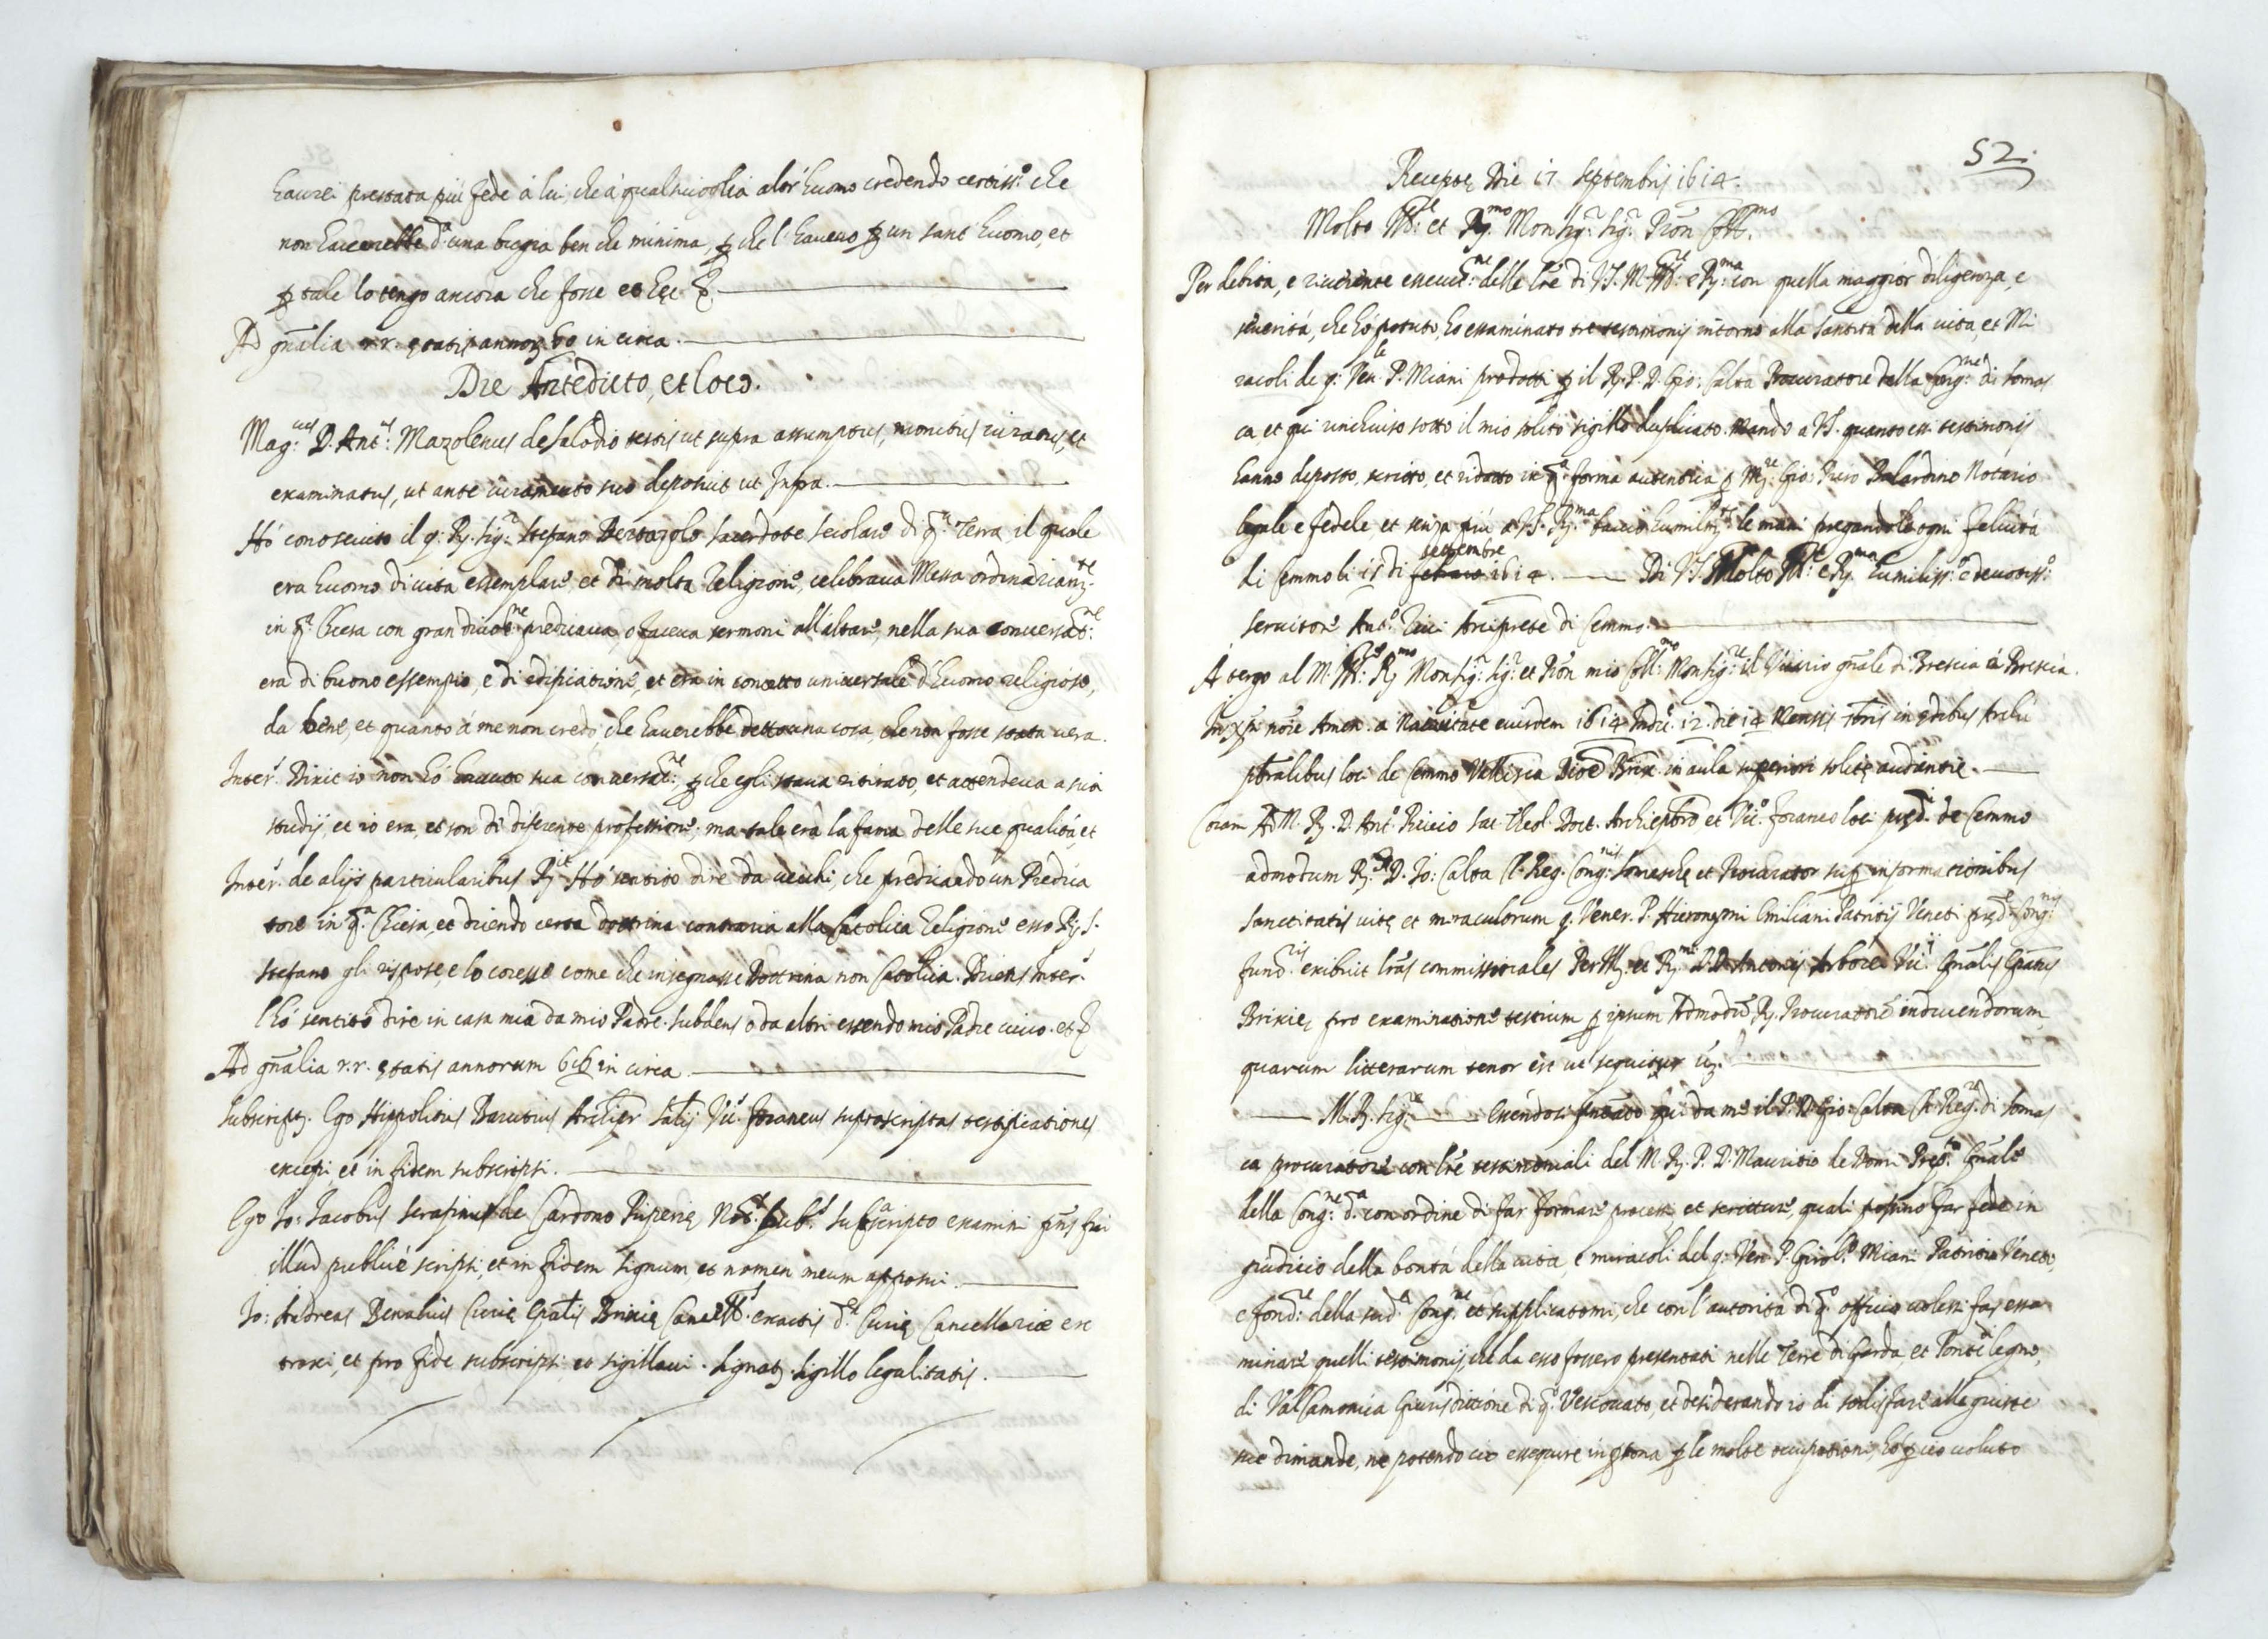 haurei prestata più fede à lui, che à qualsivoglia altr'huomo credendo certiss.º che
non haverebbe dº una bugia ben che minima, ꝑ che l'havevo ꝑ un sant'huomo, et
ꝑ tale lo tengo ancora che fosse et hęc
Ad gn̄alia r.r. ętatis annoꝝ 60 in circa.
Die Antedicto, et loco.
Mag.cus D. Ant.s Mazolenus de Salodio testis ut supra assumptus, monitus iuratus, et
examinatus, ut ante iuramento suo deposuit ut Infra.
Hó conosciuto il q. Rͩ. Sig.r Stefano Bertazolo sacerdote secolare di q.ta Terra il quale
era huomo di vita essemplare, et di molta Religione, celebrava Messa ordinariam.te
in q.ta Chiesa con gran divot.ne predicava, o faceva sermoni all'altare, nella sua conversat.ne
era di buono essempio, e di edificatione, et era in concetto universale d'huomo religioso,
da bene, et quanto à me non credo, che haverebbe detto una cosa, che non fosse stata vera.
Inter.s Dixit io non hó havuto sua conversat.ne, ꝑ che egli stava ritirato, et attendeva a suoi
studij, et io era, et son di diferente professione, ma tale era la fama delle sue qualità, et
Inter.s de alijs particularibus Rͩ.it Hó sentito dire da vecchi, che predicando un Predica
tore in q.ta Chiesa, et dicendo certa dottrina contraria alla Catolica Religione esso Rͩ. S.
Stefano gli rispose, e lo coresse come che insegnasse Dottrina non Catolica. Dicens Inter.s
l'hó sentito dire in casa mia da mio Padre. Subdens o da altri essendo mio Padre vivo. et
Ad gn̄alia r.r. ętatis annorum 66 in circa
Subscript. Ego Hippolitus Barutius Archipr Salij Vic.s foraneus suprascriptas testificationes
excepi, et in fidem subscripsi.
Ego Jo: Jacobus Serafinus de Cardono Riperię Not.s pub.s sup.ascripto examini pn̄s fui
illud publicè scripsi, et in fidem signum et nomen meum apposui.
Jo: Andreas Benalius Curię Ep̄atis Brixię Canc.s exactis d.ę Curię Cancellariæ ex
traxi, et pro fide subscripsi et sigillavi. Signat. Sigillo legalitatis.
52.
Receptę Die 17 Septembris 1614.
Molto Ill.e et Rͩ.mo Monsig.r Sig.r Pron̄ Coll.mo
Per debita, e riverente essecut.ne delle lr̄e di V.S. M. Ill.e e Rͩ.ma con quella maggior diligenza, e
severità, che hó potuto, ho essaminato tre testimonij intorno alla Santità della vita, et Mi
racoli de q. Ven.le P. Miani prodotti ꝑ il Rͩ. P. D. Gio: Calta Procuratore della Cong.ne di Somas
ca et qui rinchiuso sotto il mio solito sigillo duplicato mando a V.S. quanto essi testimonij
hanno deposto, scritto, et ridotto in q.ta forma autentica ꝑ M. Gio: Piero Balardino Notario
legale e fedele, et senza più a V.S. Rͩ.ma bacio humilm.te le mani pregandole ogni felicità
di Cemmo li 15 di settembre 1614. Di V.S. Molto Ill.e e Rͩ.ma humiliss.º e devotiss.º
servitore Ant.º Ricci Arciprete di Cemmo.
A tergo al M. Ill.e Rͩ.mo Monsig.r Sig.r et Pron̄ mio Coll.mo Monsig.r il Vicario gn̄ale di Brescia à Brescia.
In Xpi noīe Amen. a Nativitate eiusdem 1614 Indic. 12. die 14 Mensis 7bris in ędibus Archi
pb̄ralibus loci de Cemmo Vallis Dioc. Brix. in aula superiori solitę audientię.
Coram Ad M. Rͩ. D. Ant.º Riccio Sac. Theol. Doct. Archipbrō et Vic.º foraneo loci pręd.i de Cemmo
admodum Rͩ.s D. Jo: Calta Cl. Reg. Cong.nis Somaschę et Procurator sup informationibus
sanctitatis vitę et miraculorum q. Vener. P. Hieronymi Emiliani Patritij Veneti pręd.ę Cong.nis
fund.ris exibuit lr̄as commissionales Per Ill. et Rͩ.mi D.D. Antonij Arborei Vic.ij Gn̄alis Ep̄atus
Brixię, pro examinatione testium ꝑ ipsum Admodu Rͩ. Procuratore inducendorum
quarum litterarum tenor est ut sequitur vz.
M. Rͩ. Sig.re Essendosi qui da me il P. D. Gio: Calta Cl. Reg. di Somas
ca procuratore con lr̄e testimoniali del M. Rͩ. P. D. Mauritio de Domi Prep.to Gn̄ale
della Cong.ne d.a con ordine di far formare processi, et scritture, quali possino far fede in
giudicio della bontà della vita, e miracoli del q. Ven. P. Girol.º Miani Patritio Veneto,
e fond.re della sud.a Cong.ne et supplicatomi, che con l'autorità di q.º officio volessi far essa
minare quelli testimonij che da esso fossero presentati nelle Terre di Garda, et Ponte di legno,
di Val Camonica Giurisdicione di q.º Vescovato, et desiderando io di sodisfare alle giuste
sue dimande, ne potendo ciò esseguire in ꝑsona ꝑ le molte occupationi, hó ꝑ ciò voluto